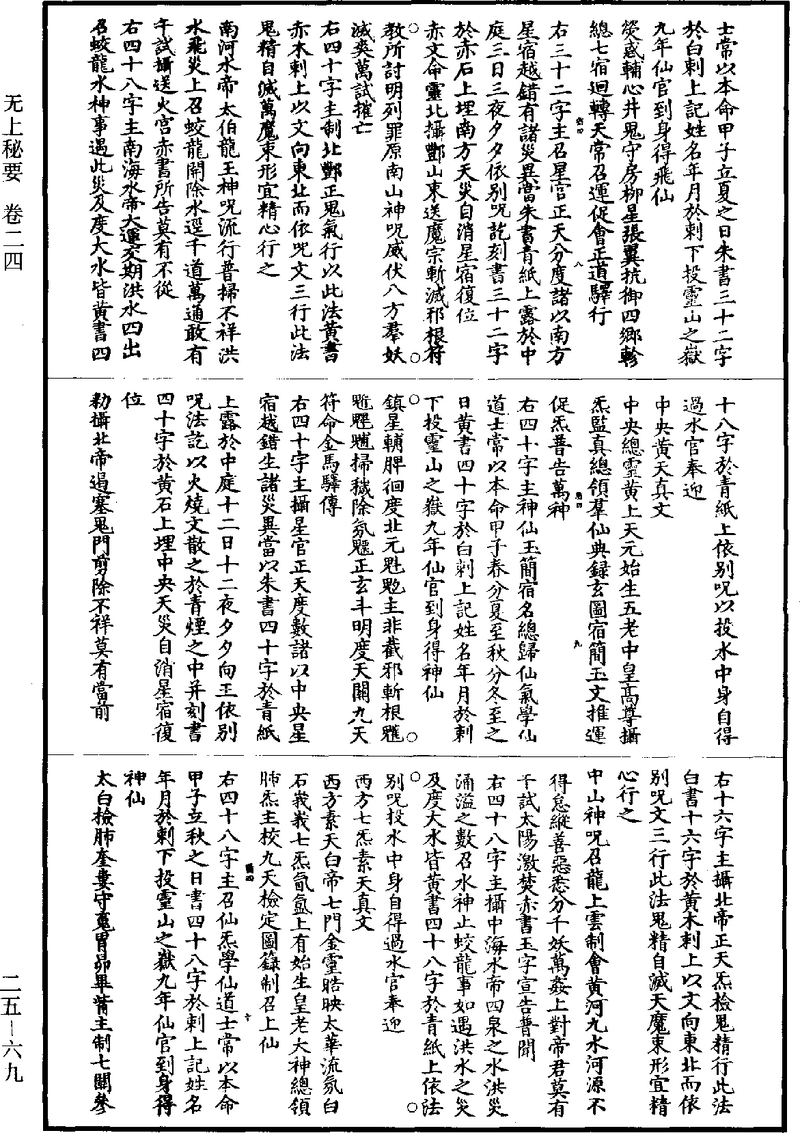 无上秘要 卷二四
士常以本命甲子立夏之日朱書三十二字
於白刺上記姓名年月於刺下投靈山之嶽
九年仙官到身得飛仙
熒惑輔心井鬼守房柳星張翼抗御四鄉軫
總七宿迴轉天常召運促會正道驛行
右三十二字主召星官正天分度諸以南方
星宿越錯有諸災異當朱書青紙上露於中
庭三日三夜夕夕依别呪訖刻書三十二字
於赤石上埋南方天災自消星宿復位
赤文命靈北攝酆山束送魔宗斬滅邪根符
教所討明列罪原南山神呪威伏八方羣妖
滅爽萬試摧亡
右四十字主制北酆正鬼氣行以此法黄書
赤木刺上以文向東北而依呪文三行此法
鬼精自滅萬魔束形宜精心行之
南河水帝太伯龍王神呪流行普掃不祥洪
水飛災上召蛟龍開除水逕千道萬通敢有
干試攝送火宫赤書所告莫有不從
右四十八字主南海水帝大運交期洪水四出
召蛟龍水神事遇此災及度大水皆黄書四
十八字於青紙上依别呪以投水中身自得
過水官奉迎
中央黄天真文
中央總靈黄上天元始生五老中皇高尊攝
炁監真總領羣仙典録玄圖宿簡玉文推運
促炁普告萬神
右四十字主神仙玉簡宿名總歸仙氣學仙
道士常以本命甲子春分夏至秋分冬至之
日黄書四十字於白刺上記姓名年月於刺
下投靈山之嶽九年仙官到身得神仙
鎮星輔脾徊度北元魁魒主非截邪斬根
掃穢除氛正玄斗明度天關九天
符命金馬驛傳
右四十字主攝星官正天度數諸以中央星
宿越錯生諸災異當以朱書四十字於青紙
上露於中庭十二日十二夜夕夕向王依别
呪法訖以火燒文散之於青煙之中并刻書
四十字於黄石上埋中央天災自消星宿復
位
勑攝北帝遏塞鬼門剪除不祥莫有當前
右十六字主攝北帝正天炁檢鬼精行此法
白書十六字於黄木刺上以文向東北而依
别呪文三行此法鬼精自滅天魔束形宜精
心行之
中山神呪召龍上雲制會黄河九水河源不
得怠縱善惡悉分千妖萬姦上對帝君莫有
干試太陽激焚赤書玉字宣告普聞
右四十八字主攝中海水帝四泉之水洪災
涌溢之數召水神止蛟龍事如遇洪水之災
及度大水皆黄書四十八字於青紙上依法
别呪投水中身自得過水官奉迎
西方七炁素天真文
西方素天白帝七門金靈皓映太華流氛白
石峩峩七炁氤氲上有始生皇老大神總領
肺炁主校九天檢定圖籙制召上仙
右四十八字主召仙炁學仙道士常以本命
甲子立秋之日書四十八字於刺上記姓名
年月於刺下投靈山之嶽九年仙官到身得
神仙
太白檢肺奎婁守魂胃昴畢觜主制七關參
二五－六九